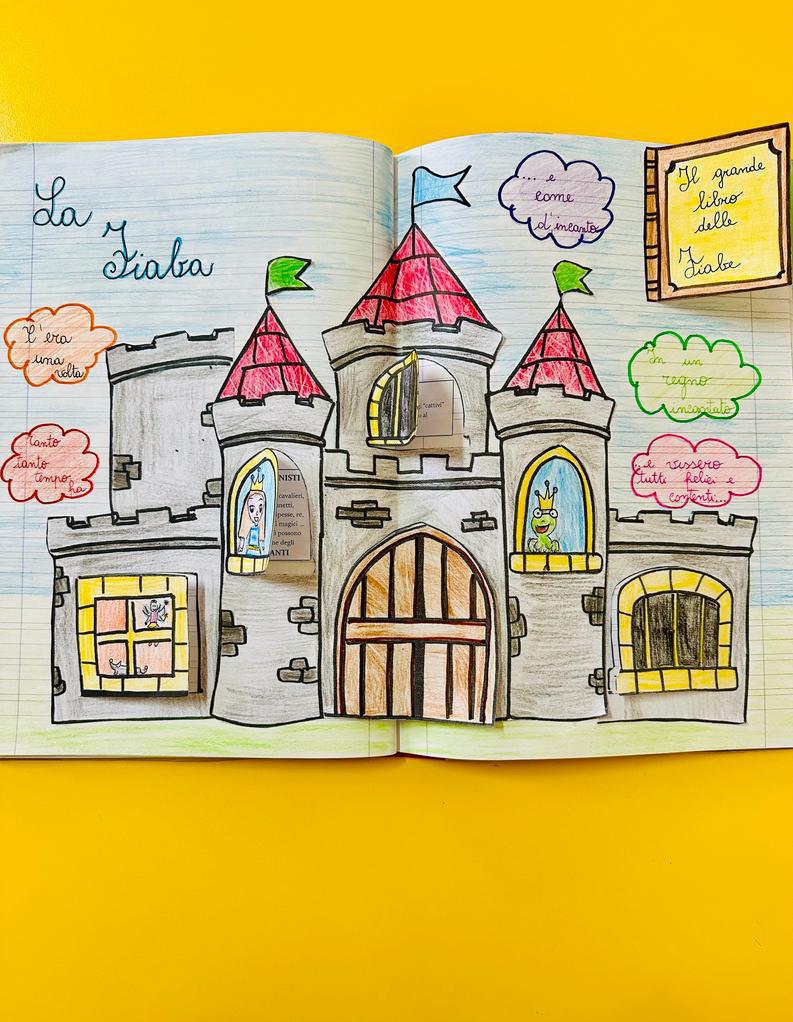 La
Fiaba
C'era
una
volta
tanto
tanto
tempo
fa
... e
come
d'incanto
Il grande
libro
delle
Fiabe
In un
regno
incantato
...e vissero
tutti felici e
contenti...
"cattivi"
al
NISTI
cavalieri,
anetti,
spesse, re,
i magici ...
possono
ne degli
ANTI